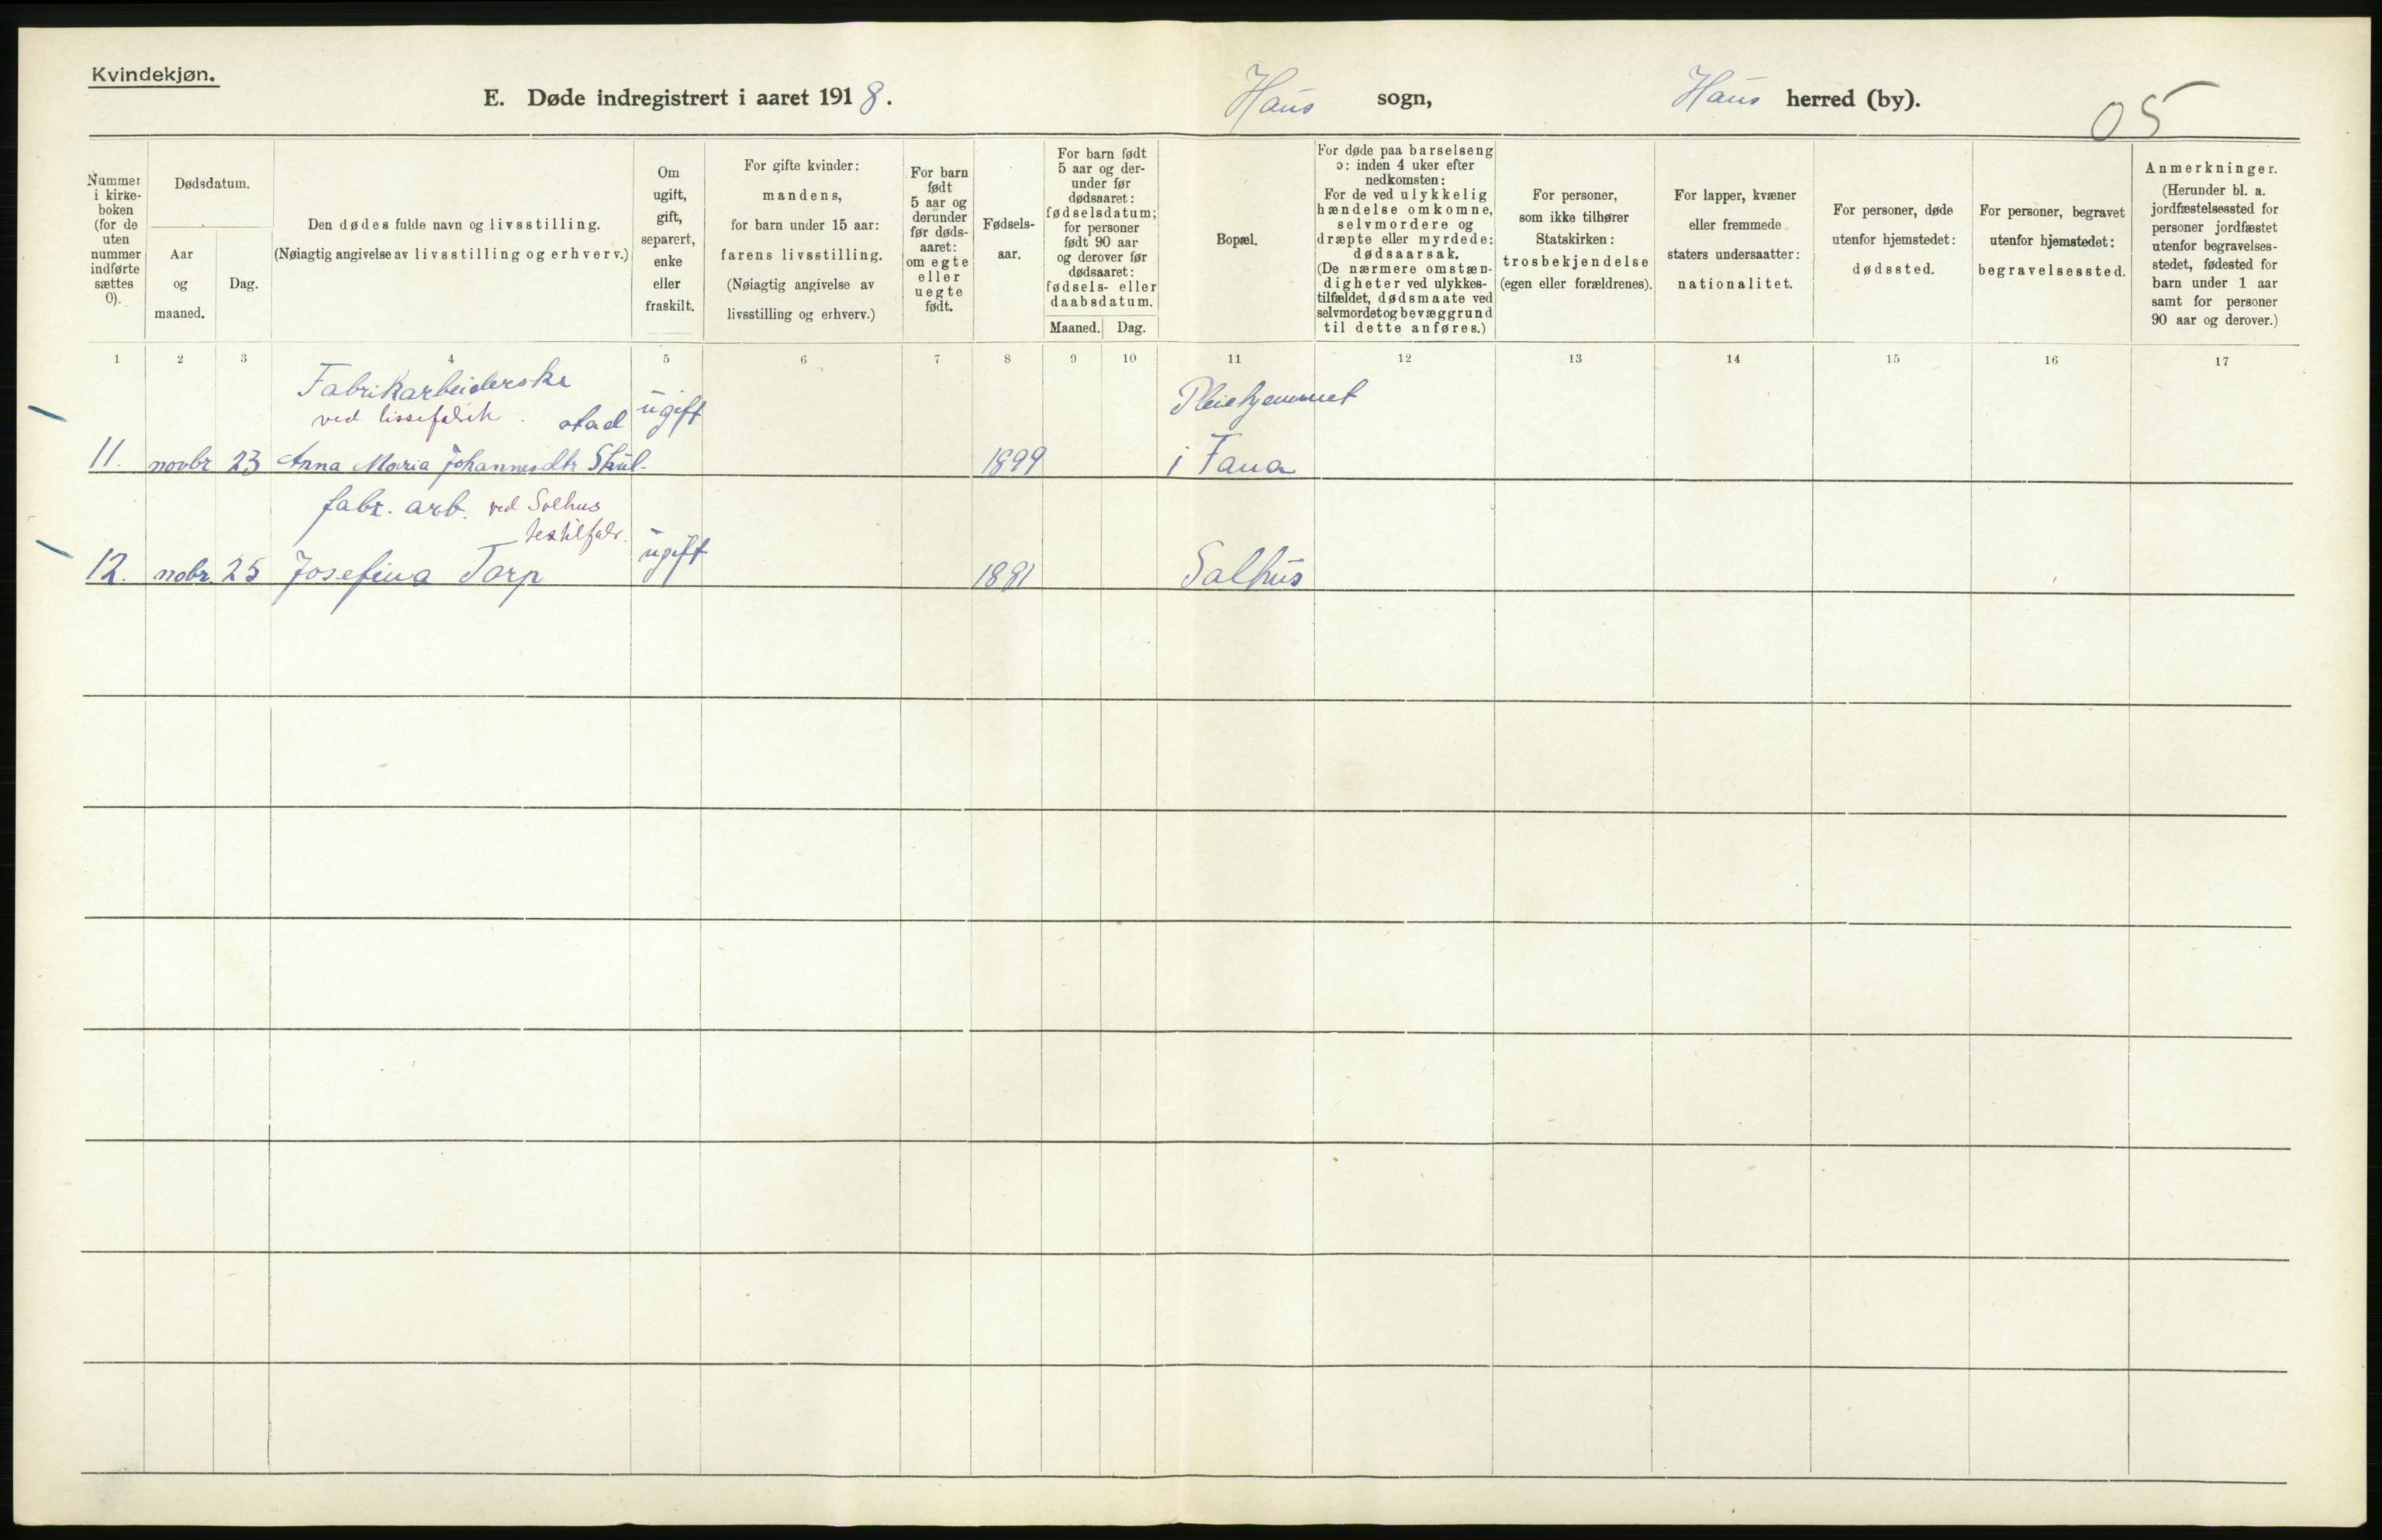 Kvindekjøn.
E. Døde indregistrert i aaret 1918.
Haus sogn,
Haus herred (by).
05
Nummer i kirkeboken (for de uten nummer indførte sættes 0).
Dødsdatum.
Aar og maaned.
Dag.
Den dødes fulde navn og livsstilling.
(Nøiagtig angivelse av livsstilling og erhverv.)
Om ugift, gift, separert, enke eller fraskilt.
For gifte kvinder:
mandens,
for barn under 15 aar:
farens livsstilling.
(Nøiagtig angivelse av livsstilling og erhverv.)
For barn født 5 aar og derunder før dødsaaret: om egte eller uegte født.
Fødselsaar.
For barn født 5 aar og derunder før dødsaaret: fødselsdatum; for personer født 90 aar og derover før dødsaaret: fødsels- eller daabsdatum.
Maaned. Dag.
Bopæl.
For døde paa barselseng ɔ: inden 4 uker efter nedkomsten:
For de ved ulykkelig hændelse omkomne, selvmordere og dræpte eller myrdede: dødsaarsak.
(De nærmere omstændigheter ved ulykkestilfældet, dødsmaate ved selvmordet og bevæggrund til dette anføres.)
For personer, som ikke tilhører Statskirken: trosbekjendelse (egen eller forældrenes).
For lapper, kvæner eller fremmede staters undersaatter: nationalitet.
For personer, døde utenfor hjemstedet: dødssted.
For personer, begravet utenfor hjemstedet: begravelsessted.
Anmerkninger.
(Herunder bl. a. jordfæstelsessted for personer jordfæstet utenfor begravelsesstedet, fødested for barn under 1 aar samt for personer 90 aar og derover.)
1 2 3 4 5 6 7 8 9 10 11 12 13 14 15 16 17
Fabrikarbeiderske
ved lissefabrik . stad ugift Pleiehjemmet
11. novbr 23 Anna Maria Johannesdtr Skul- 1899 i Fana
fabr. arb. ved Salhus
textilfabr.
12. nobr. 25 Josefina Torp ugift 1881 Salhus